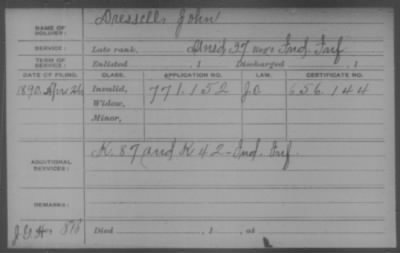 NAME OF SOLDIER: Dressell, John
SERVICE: Late rank, 37 Ind. Inf
TERM OF SERVICE: Enlisted , 1 Discharged , 1
DATE OF FILING. CLASS. APPLICATION NO. LAW. CERTIFICATE NO.
1890 Invalid, 771.152 656.144
Widow,
Minor,
ADDITIONAL SERVICES: K. 87 and K 42 - Ind. Inf.
REMARKS:
Died , 1 , at